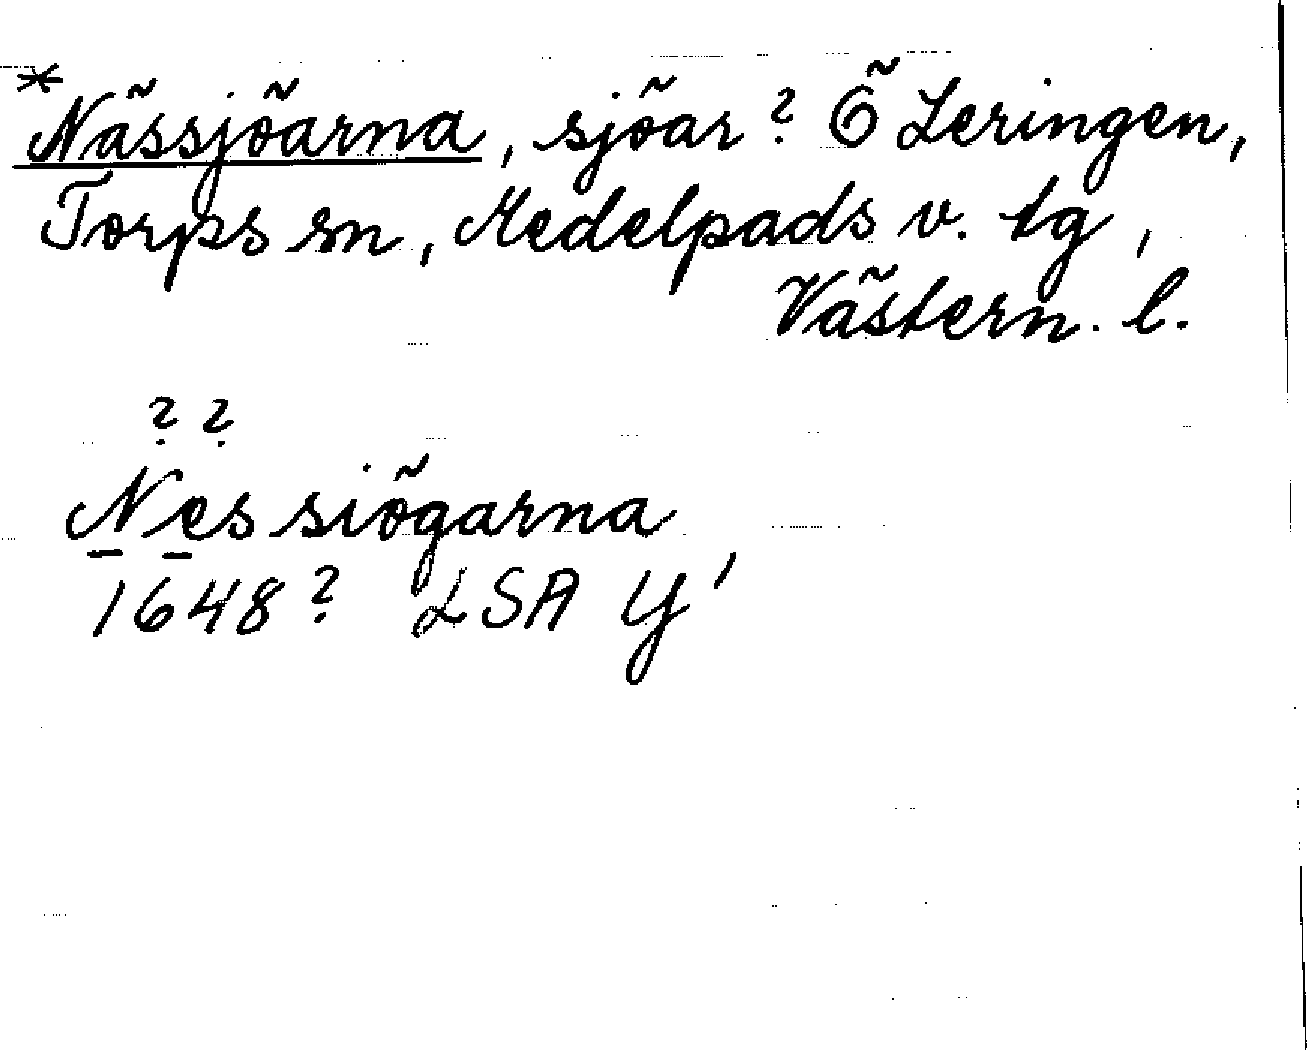 *Nässjöarna, sjöar? Ö Leringen,
Torps sn, Medelpads v. tg,
Västern. l.
? ?
Nes siögarna
1648? LSA Y'